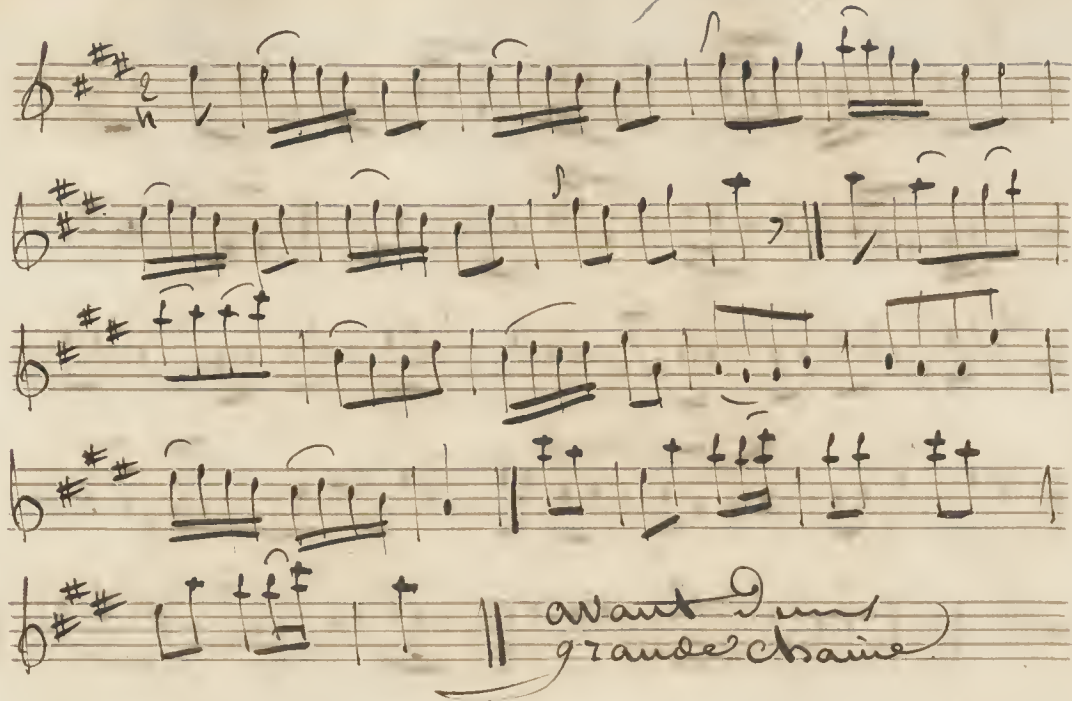 2
4
avant Deux
grande chaine